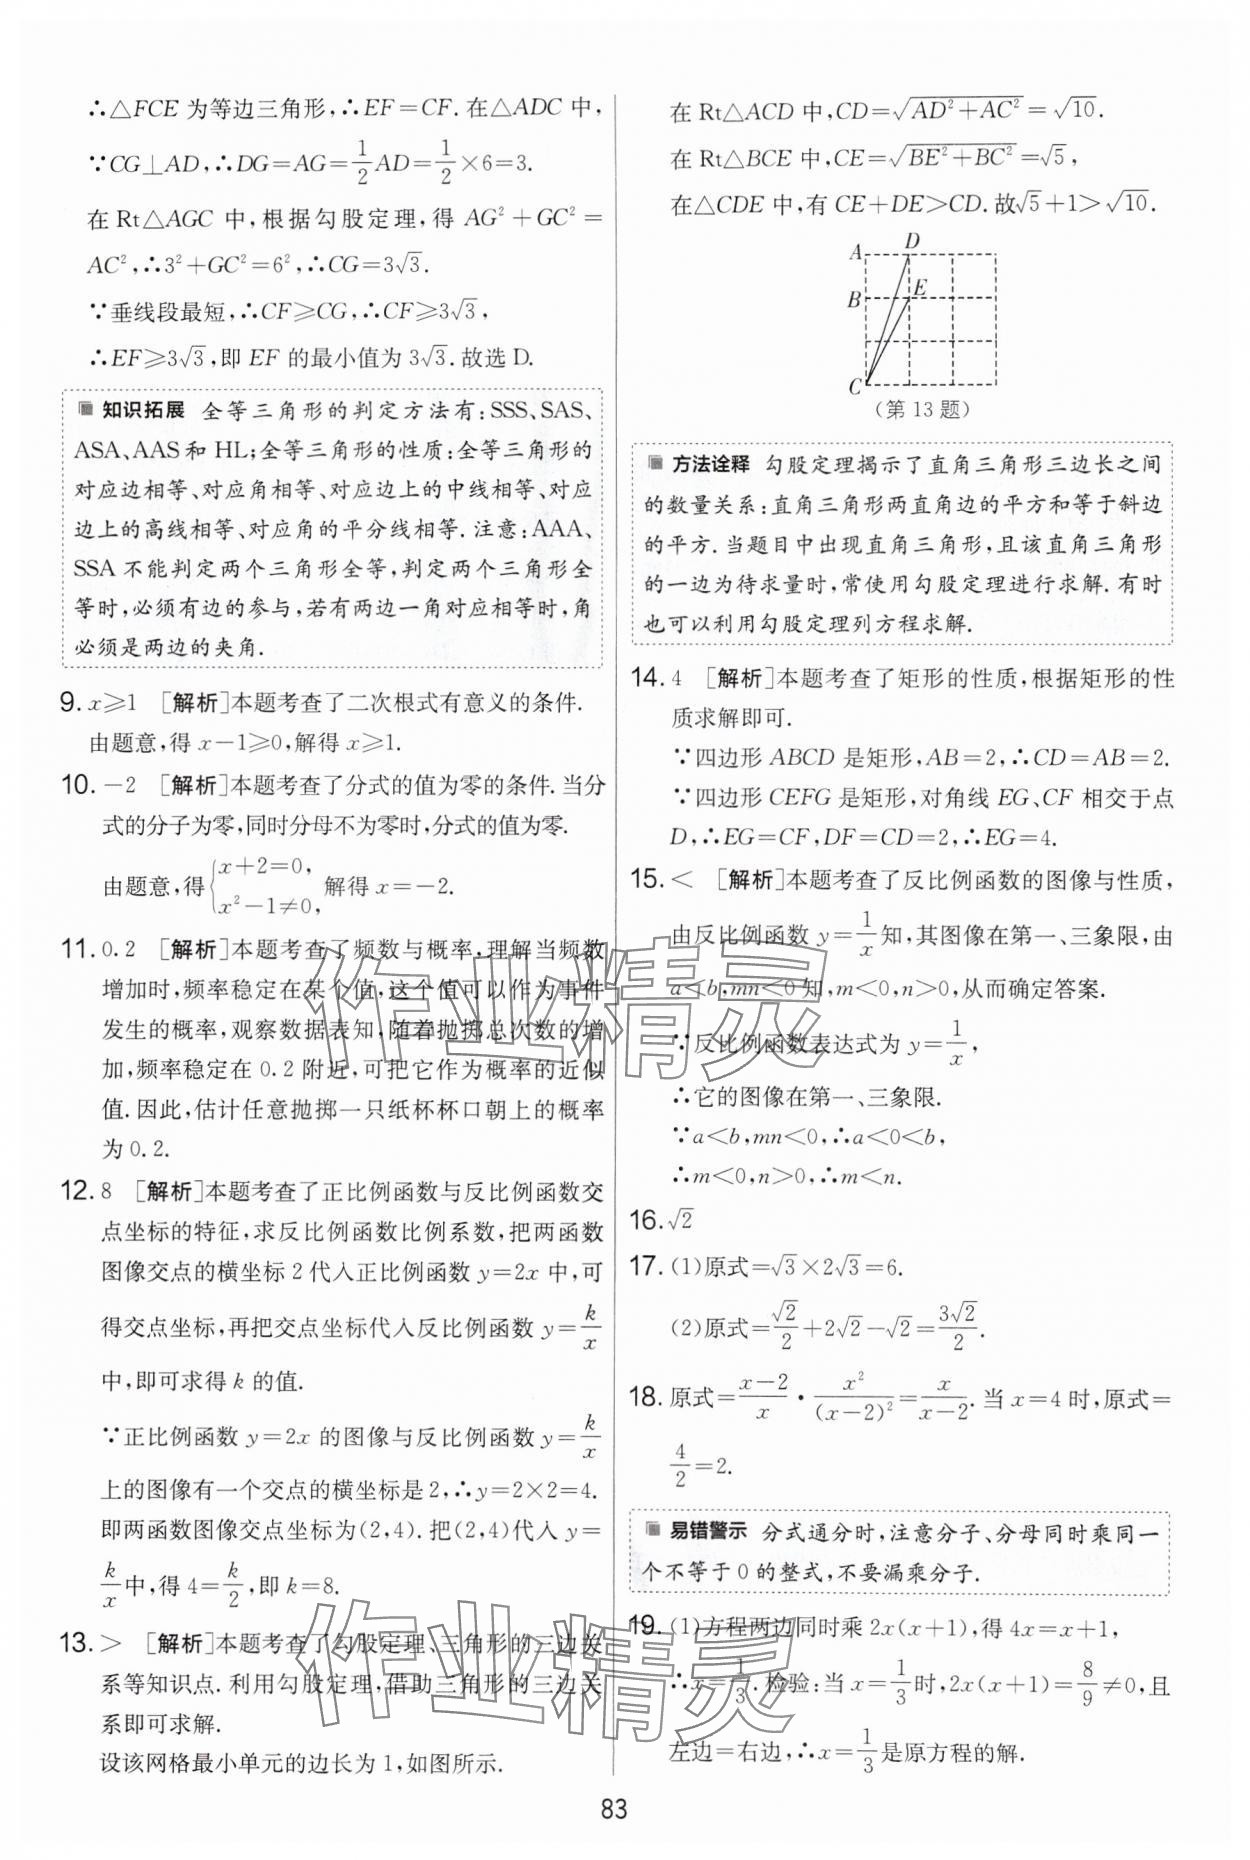 ∴△FCE 为等边三角形,∴EF=CF.在△ADC 中,
∵CG⊥AD,∴DG=AG=1/2AD=1/2×6=3.
在 Rt△AGC 中,根据勾股定理,得 AG²+GC²=
AC²,∴3²+GC²=6²,∴CG=3√3.
∵垂线段最短,∴CF≥CG,∴CF≥3√3,
∴EF≥3√3,即 EF 的最小值为 3√3.故选 D.
知识拓展 全等三角形的判定方法有:SSS、SAS、
ASA、AAS 和 HL;全等三角形的性质:全等三角形的
对应边相等、对应角相等、对应边上的中线相等、对应
边上的高线相等、对应角的平分线相等.注意:AAA、
SSA 不能判定两个三角形全等,判定两个三角形全
等时,必须有边的参与,若有两边一角对应相等时,角
必须是两边的夹角.
9. x≥1 [解析]本题考查了二次根式有意义的条件.
由题意,得 x-1≥0,解得 x≥1.
10. -2 [解析]本题考查了分式的值为零的条件.当分
式的分子为零,同时分母不为零时,分式的值为零.
由题意,得{x+2=0, x²-1≠0, 解得 x=-2.
11. 0.2 [解析]本题考查了频数与概率,理解当频数
增加时,频率稳定在某个值,这个值可以作为事件
发生的概率,观察数据表知,随着抛掷总次数的增
加,频率稳定在 0.2 附近,可把它作为概率的近似
值.因此,估计任意抛掷一只纸杯杯口朝上的概率
为 0.2.
12. 8 [解析]本题考查了正比例函数与反比例函数交
点坐标的特征,求反比例函数比例系数,把两函数
图像交点的横坐标 2 代入正比例函数 y=2x 中,可
得交点坐标,再把交点坐标代入反比例函数 y=k/x
中,即可求得 k 的值.
∵正比例函数 y=2x 的图像与反比例函数 y=k/x
上的图像有一个交点的横坐标是 2,∴y=2×2=4.
即两函数图像交点坐标为(2,4).把(2,4)代入 y=
k/x中,得 4=k/2,即 k=8.
13. > [解析]本题考查了勾股定理、三角形的三边关
系等知识点.利用勾股定理,借助三角形的三边关
系即可求解.
设该网格最小单元的边长为 1,如图所示.
在 Rt△ACD 中,CD=√(AD²+AC²)=√10.
在 Rt△BCE 中,CE=√(BE²+BC²)=√5,
在△CDE 中,有 CE+DE>CD.故√5+1>√10.
D
A
B
E
C
(第 13 题)
方法诠释 勾股定理揭示了直角三角形三边长之间
的数量关系:直角三角形两直角边的平方和等于斜边
的平方.当题目中出现直角三角形,且该直角三角形
的一边为待求量时,常使用勾股定理进行求解.有时
也可以利用勾股定理列方程求解.
14. 4 [解析]本题考查了矩形的性质,根据矩形的性
质求解即可.
∵四边形 ABCD 是矩形,AB=2,∴CD=AB=2.
∵四边形 CEFG 是矩形,对角线 EG、CF 相交于点
D,∴EG=CF,DF=CD=2,∴EG=4.
15. < [解析]本题考查了反比例函数的图像与性质,
由反比例函数 y=1/x知,其图像在第一、三象限,由
a<b,mn<0 知,m<0,n>0,从而确定答案.
∵反比例函数表达式为 y=1/x,
∴它的图像在第一、三象限.
∵a<b,mn<0,∴a<0<b,
∴m<0,n>0,∴m<n.
16. √2
17. (1)原式=√3×2√3=6.
(2)原式=√2/2+2√2-√2=3√2/2.
18. 原式=(x-2)/x·x²/(x-2)²=x/(x-2).当 x=4 时,原式=
4/2=2.
易错警示 分式通分时,注意分子、分母同时乘同一
个不等于 0 的整式,不要漏乘分子.
19. (1)方程两边同时乘 2x(x+1),得 4x=x+1,
∴x=1/3.检验:当 x=1/3时,2x(x+1)=8/9≠0,且
左边=右边,∴x=1/3是原方程的解.
作业精灵
作业精灵
83